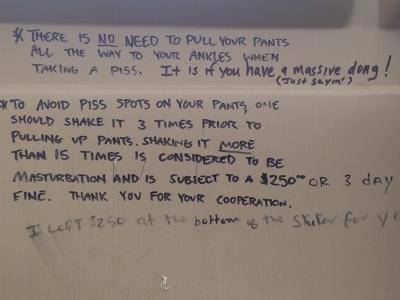 * THERE IS NO NEED TO PULL YOUR PANTS
ALL THE WAY TO YOUR ANKLES WHEN
TAKING A PISS. It is if you have a massive dong!
(Just sayin')
* TO AVOID PISS SPOTS ON YOUR PANTS, ONE
SHOULD SHAKE IT 3 TIMES PRIOR TO
PULLING UP PANTS. SHAKING IT MORE
THAN 15 TIMES IS CONSIDERED TO BE
MASTURBATION AND IS SUBJECT TO A $250⁰⁰ OR 3 DAY
FINE. THANK YOU FOR YOUR COOPERATION.
I LEFT $250 at the bottom of the Shitter for